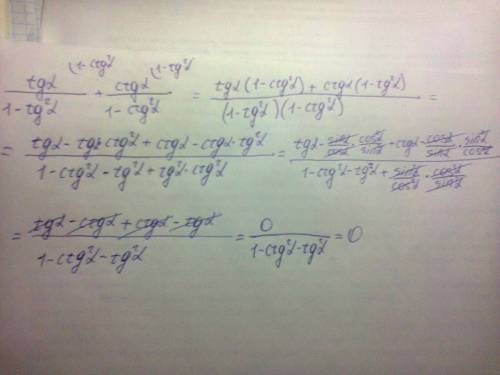 tgα (1-ctg²α) / 1-tg²α + ctgα (1-tg²α) / 1-ctg²α = tgα(1-ctg²α)+ctgα(1-tg²α) / (1-tg²α)(1-ctg²α) =
= tgα-tgα·ctg²α+ctgα-ctgα·tg²α / 1-ctg²α-tg²α+tg²α·ctg²α = tgα-sinα/cosα·cos²α/sin²α+ctgα-cosα/sinα·sin²α/cos²α / 1-ctg²α-tg²α+sin²α/cos²α·cos²α/sin²α
= tgα-ctgα+ctgα-tgα / 1-ctg²α-tg²α = 0 / 1-ctg²α-tg²α = 0